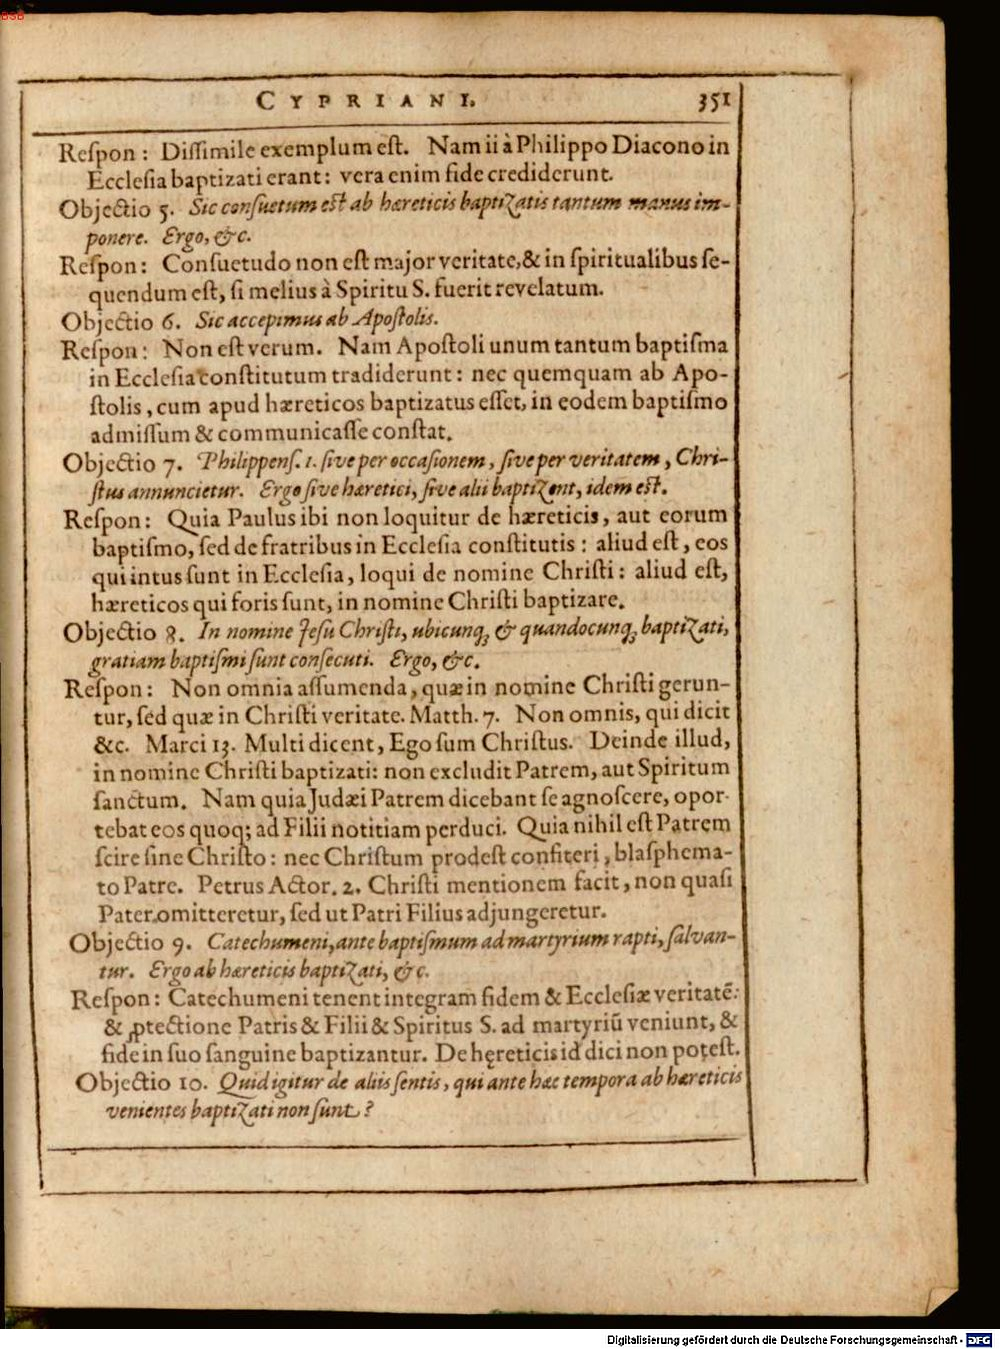 BSB
CYPRIANI. 351
Reſpon: Diſſimile exemplum eſt. Nam ii à Philippo Diacono in
Eccleſia baptizati erant: vera enim fide crediderunt.
Objectio 5. Sic conſuetum eſt ab hæreticis baptizatis tantum manus im-
ponere. Ergo, &c.
Reſpon: Conſuetudo non eſt major veritate, & in ſpiritualibus ſe-
quendum eſt, ſi melius à Spiritu S. fuerit revelatum.
Objectio 6. Sic accepimus ab Apoſtolis.
Reſpon: Non eſt verum. Nam Apoſtoli unum tantum baptiſma
in Eccleſia conſtitutum tradiderunt: nec quemquam ab Apo-
ſtolis, cum apud hæreticos baptizatus eſſet, in eodem baptiſmo
admiſſum & communicaſſe conſtat.
Objectio 7. Philippenſ. 1. ſive per occaſionem, ſive per veritatem, Chri-
ſtus annuncietur. Ergo ſive hæretici, ſive alii baptizent, idem eſt.
Reſpon: Quia Paulus ibi non loquitur de hæreticis, aut eorum
baptiſmo, ſed de fratribus in Eccleſia conſtitutis: aliud eſt, eos
qui intus ſunt in Eccleſia, loqui de nomine Chriſti: aliud eſt,
hæreticos qui foris ſunt, in nomine Chriſti baptizare.
Objectio 8. In nomine Jeſu Chriſti, ubicunq́ꝫ & quandocunqꝫ baptizati,
gratiam baptiſmi ſunt conſecuti. Ergo, &c.
Reſpon: Non omnia aſſumenda, quæ in nomine Chriſti gerun-
tur, ſed quæ in Chriſti veritate. Matth. 7. Non omnis, qui dicit
&c. Marci 13. Multi dicent, Ego ſum Chriſtus. Deinde illud,
in nomine Chriſti baptizati: non excludit Patrem, aut Spiritum
ſanctum. Nam quia Judæi Patrem dicebant ſe agnoſcere, opor-
tebat eos quoq; ad Filii notitiam perduci. Quia nihil eſt Patrem
ſcire ſine Chriſto: nec Chriſtum prodeſt confiteri, blaſphema-
to Patre. Petrus Actor. 2. Chriſti mentionem facit, non quaſi
Pater omitteretur, ſed ut Patri Filius adjungeretur.
Objectio 9. Catechumeni, ante baptiſmum ad martyrium rapti, ſalvan-
tur. Ergo ab hæreticis baptizati, &c.
Reſpon: Catechumeni tenent integram fidem & Eccleſiæ veritatē:
& ꝓtectione Patris & Filii & Spiritus S. ad martyriū veniunt, &
fide in ſuo ſanguine baptizantur. De hęreticis id dici non poteſt.
Objectio 10. Quid igitur de aliis ſentis, qui ante hæc tempora ab hæreticis
venientes baptizati non ſunt?
Digitalisierung gefördert durch die Deutsche Forschungsgemeinschaft - DFG